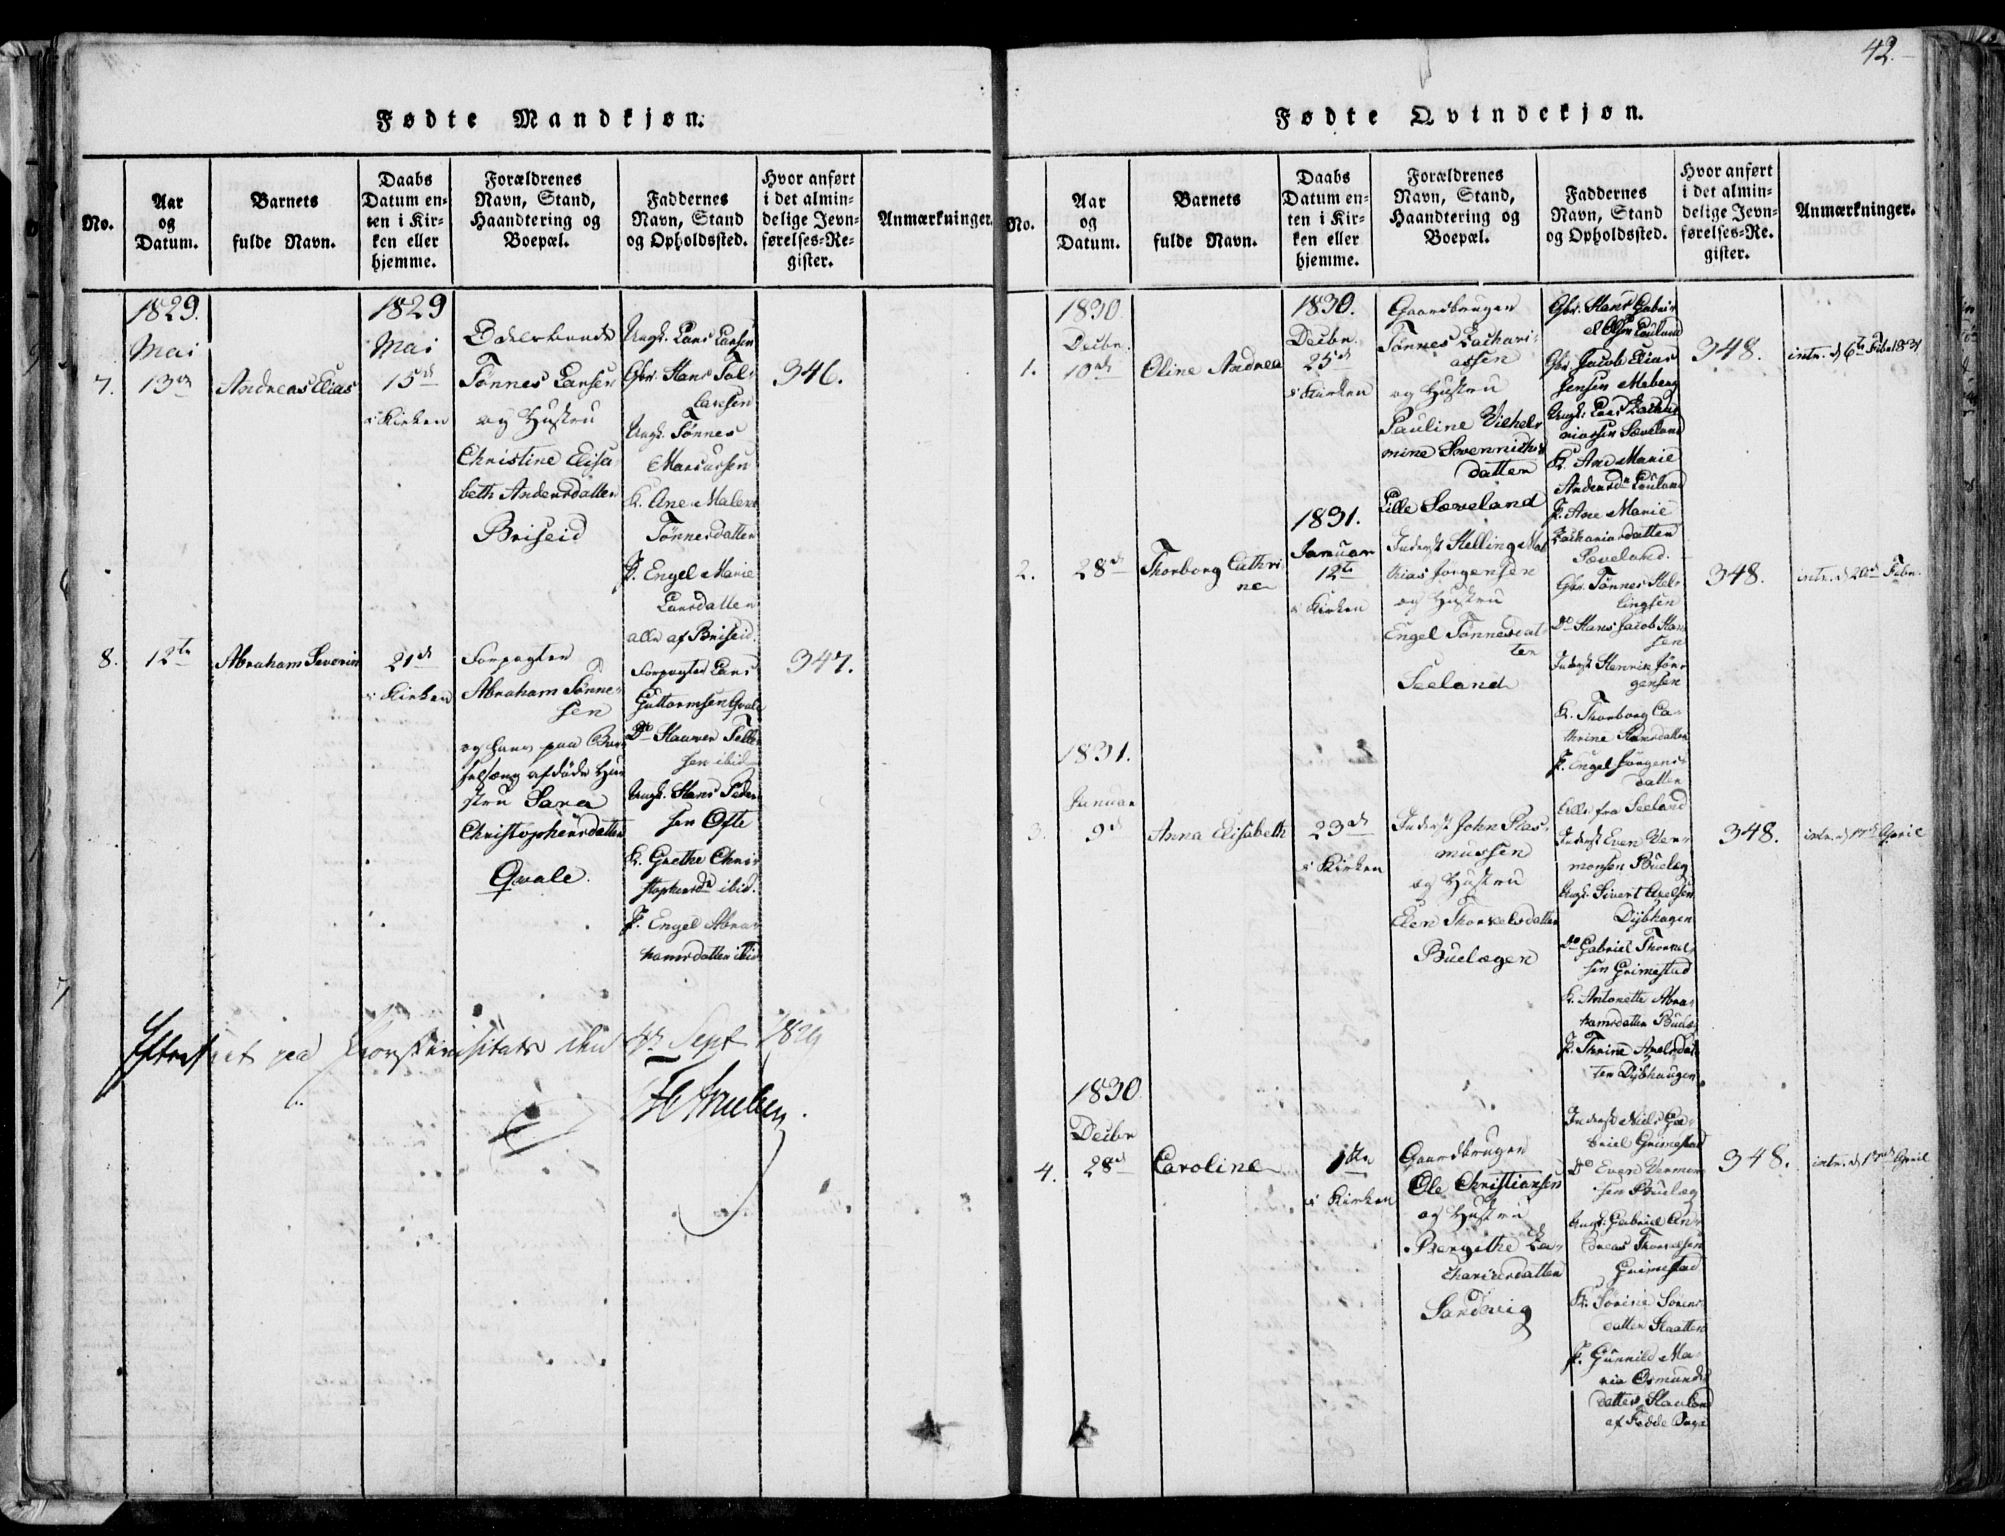 42.
Fødte Mandkjøn.
No.
Aar
og
Datum.
Barnets
fulde Navn.
Daabs
Datum en-
ten i Kir-
ken eller
hjemme.
Forældrenes
Navn, Stand,
Haandtering og
Boepæl.
Faddernes
Navn, Stand
og Opholdssted.
Hvor anført
i det almin-
delige Jevn-
førelses-Re-
gister.
Anmærkninger.
1829.
Mai
7. 13de
Andreas Elias
1829
Mai
15de
i Kirken
Tønnes Larsen
og Hustru
Christine Elisa
beth Andersdatter
Briseid
Ungk. Lars Larsen
Gbr. Hans Tol-
larsen
Ungk. Tønnes
Marcussen
K. Ane Malene
Tønnesdatter
P. Engel Marie
Larsdatter
alle af Briseid.
346.
8. 12te
Abraham Severin
21de
i Kirken
Forpagter
Abraham Tønne-
sen
og hans paa Bar-
selseng afdøde Hu-
stru Sara
Christophersdatter
Qvale.
Forpagter Lars
Guttormsen Qvale
Do Staurer Tolle
sen ibid
Ungk. Hans Peder
sen Ofte
K. Grethe Chri-
stophersdr ibid.
P. Engel Abra-
hamsdatter ibid
347.
den 4de Sept 1829
Fødte Qvindekjøn.
No.
Aar
og
Datum.
Barnets
fulde Navn.
Daabs
Datum en-
ten i Kir-
ken eller
hjemme.
Forældrenes
Navn, Stand,
Haandtering og
Boepæl.
Faddernes
Navn, Stand
og Opholdssted.
Hvor anført
i det almin-
delige Jevn-
førelses-Re-
gister.
Anmærkninger.
1830
Decbr.
1. 10de
Oline Andrea
1830.
Decbr.
25de
i Kirken
Gaardbruger
Tønnes Zachari-
assen
og Hustru
Pauline Vilhel-
mine Svenniths
datter
Lille Sæveland
Gbr. Hans Gabri-
el Olsen Louland
Gbr. Jacob Elias
Jensen Meberg
Ungk. Lars Zacha-
riassen Sæveland
K. Ane Marie
Andersdr Louland
P. Ane Marie
Zachariasdatter
Sæveland.
348.
intr. d 6te Febr 1831
2. 28de
Thorborg Cathri
ne
1831.
Januar
12te
i Kirken
Inderst Helling Mat
thias Jørgensen
og Hustru
Engel Tønnesdat-
ter
Seeland
Gbr. Tønnes Hel-
lingsen
Do Hans Jacob Han
sen
Inderst Henrik Jør-
gensen
K. Thorborg Ca-
thrine Hansdatter
P. Engel Jørgens-
datter
Alle fra Seeland
348.
intr. d 20de Febr.
1831.
Januar
3. 9de
Anna Elisabeth
23de
i Kirken
Inderst John Ras-
mussen
og Hustru
Elen Thorkelsdatter
Buelægen
Inderst Even Ver-
monsen Buelæg
Ungk. Sivert Axelsen
Dybhagen
do Gabriel Thorkel
sen Grimestad
K. Antonette Abra-
hamsdatter Buelæ
P. Thrine Axelsdat-
ter Dybhaugen
348.
intr. d 17de April
1830
Decbr
4. 28de
Caroline
i Kirken
Gaardbruger
Ole Christiansen
og Hustru
Bergithe Za-
chariasdatter
Sandvig
Inderst Niels Ga-
briel Grimestad
Do Even Vermon
sen Buelæg
Ungk. Gabriel An-
dreas Thorkelsen
Grimestad
K. Sørine Sørens
datter Slaatten
P. Gunnild Ma-
rie Osmunds
datter
af Fedde Sogn
348.
intr. d 17de April